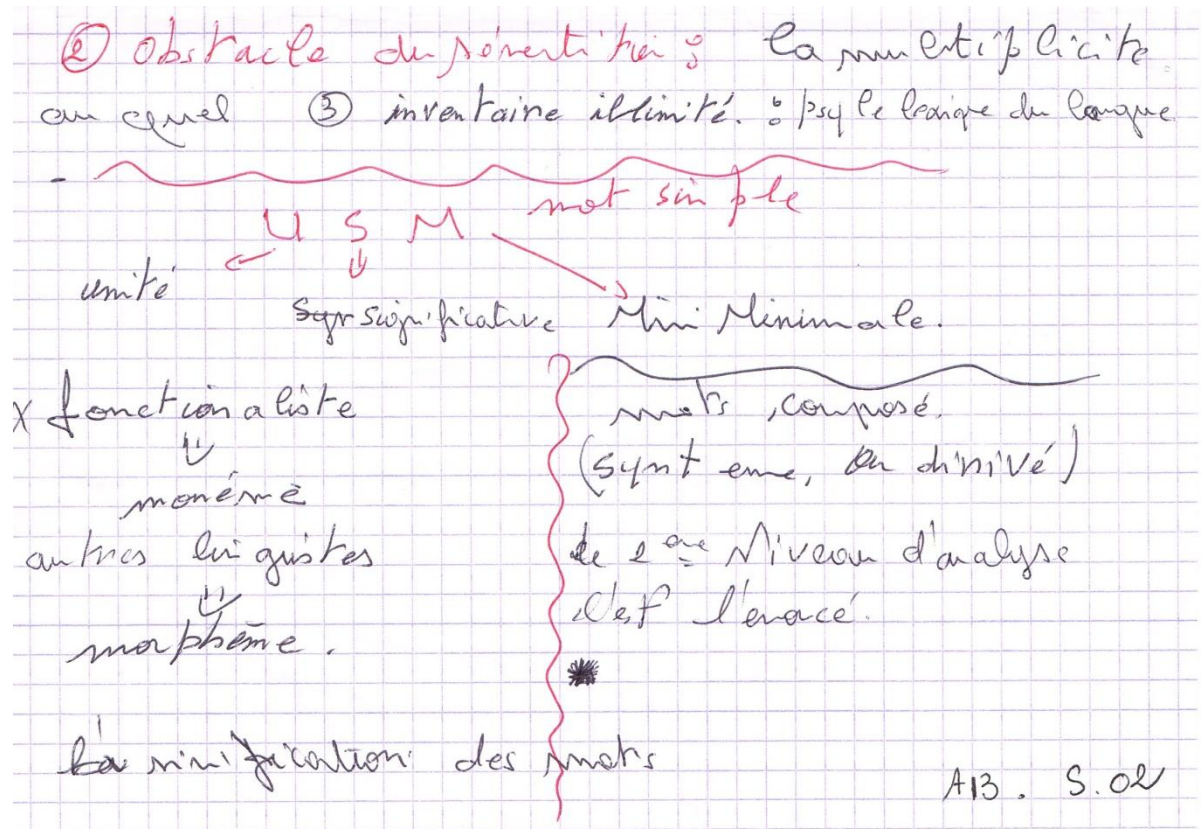 ② Obstacle du : la multiplicité
au quel ③ inventaire illimité. : psq le lexique du langue
- mot simple
U S M
unité
significative Mini Minimale.
x fonctionaliste
monéme
autres linguistes
morphème.
mots composé.
(synteme, ou dirivé)
le 2eme Niveau d'analyse
c'est l'enoncé.
La des mots
A13. S.02